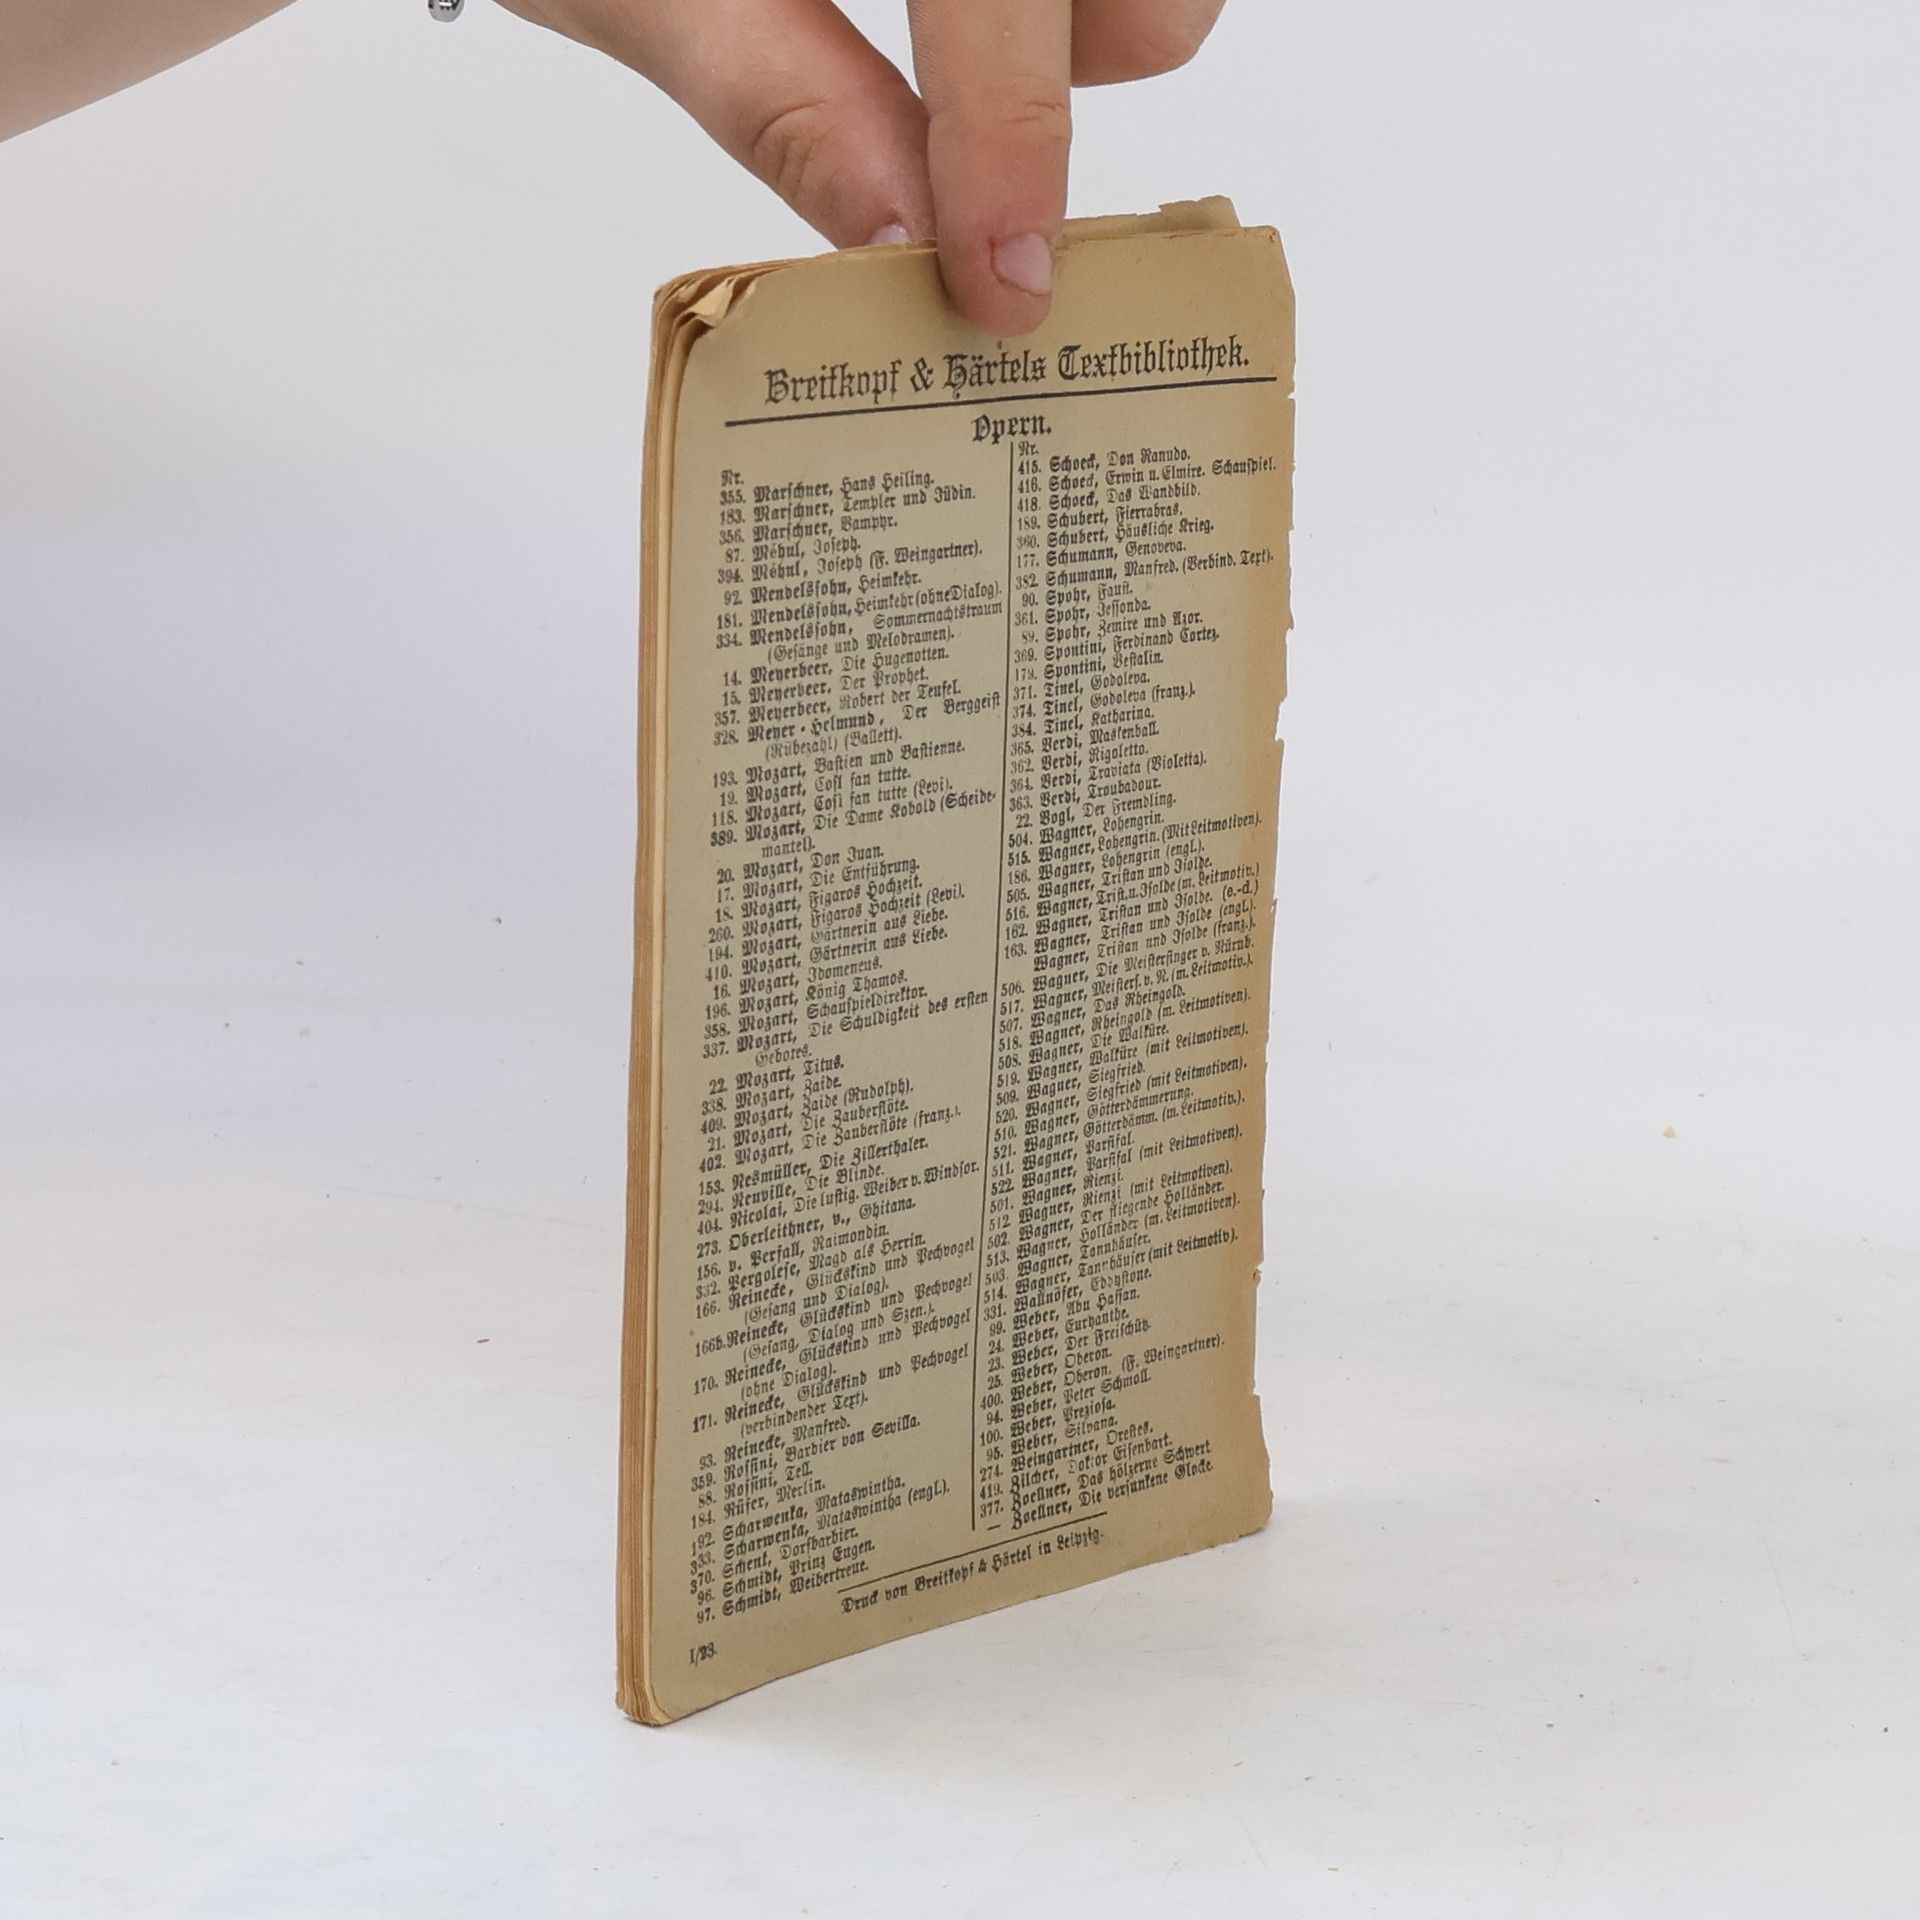 Breitkopf & Härtels Textbibliothek.
Opern.
Nr.
355. Marschner, Hans Heiling.
183. Marschner, Templer und Jüdin.
356. Marschner, Vampyr.
87. Méhul, Joseph.
394. Méhul, Joseph (F. Weingartner).
92. Mendelssohn, Heimkehr.
181. Mendelssohn, Heimkehr (ohne Dialog).
334. Mendelssohn, Sommernachtstraum
(Gesänge und Melodramen).
14. Meyerbeer, Die Hugenotten.
15. Meyerbeer, Der Prophet.
357. Meyerbeer, Robert der Teufel.
328. Meyer-Helmund, Der Berggeist
(Rübezahl) (Ballett).
193. Mozart, Bastien und Bastienne.
19. Mozart, Così fan tutte.
118. Mozart, Così fan tutte (Levi).
389. Mozart, Die Dame Kobold (Scheide-
mantel).
20. Mozart, Don Juan.
17. Mozart, Die Entführung.
18. Mozart, Figaros Hochzeit.
260. Mozart, Figaros Hochzeit (Levi).
194. Mozart, Gärtnerin aus Liebe.
410. Mozart, Gärtnerin aus Liebe.
16. Mozart, Idomeneus.
196. Mozart, König Thamos.
358. Mozart, Schauspieldirektor.
337. Mozart, Die Schuldigkeit des ersten
Gebotes.
22. Mozart, Titus.
338. Mozart, Zaide.
409. Mozart, Zaide (Rudolph).
21. Mozart, Die Zauberflöte.
402. Mozart, Die Zauberflöte (franz.).
153. Nesmüller, Die Zillerthaler.
294. Neuville, Die Blinde.
404. Nicolai, Die lustig. Weiber v. Windsor.
273. Oberleithner, v., Ghitana.
156. v. Perfall, Raimondin.
332. Pergolese, Magd als Herrin.
166. Reinecke, Glückskind und Pechvogel
(Gesang und Dialog).
166b. Reinecke, Glückskind und Pechvogel
(Gesang, Dialog und Szen.).
170. Reinecke, Glückskind und Pechvogel
(ohne Dialog).
171. Reinecke, Glückskind und Pechvogel
(verbindender Text).
93. Reinecke, Manfred.
359. Rossini, Barbier von Sevilla.
88. Rossini, Tell.
184. Rüfer, Merlin.
192. Scharwenka, Mataswintha.
333. Scharwenka, Mataswintha (engl.).
370. Schenk, Dorfbarbier.
96. Schmidt, Prinz Eugen.
97. Schmidt, Weibertreue.
Nr.
415. Schoeck, Don Ranudo.
416. Schoeck, Erwin u. Elmire. Schauspiel.
418. Schoeck, Das Wandbild.
189. Schubert, Fierrabras.
360. Schubert, Häusliche Krieg.
177. Schumann, Genoveva.
382. Schumann, Manfred. (Verbind. Text).
90. Spohr, Faust.
361. Spohr, Jessonda.
89. Spohr, Zemire und Azor.
369. Spontini, Ferdinand Cortez.
179. Spontini, Vestalin.
371. Tinel, Godoleva.
374. Tinel, Godoleva (franz.).
384. Tinel, Katharina.
365. Verdi, Maskenball.
362. Verdi, Rigoletto.
364. Verdi, Traviata (Violetta).
363. Verdi, Troubadour.
22. Vogl, Der Fremdling.
504. Wagner, Lohengrin.
515. Wagner, Lohengrin. (Mit Leitmotiven).
186. Wagner, Lohengrin (engl.).
505. Wagner, Tristan und Isolde.
516. Wagner, Trist. u. Isolde (m. Leitmotiv.)
162. Wagner, Tristan und Isolde. (e.-d.)
163. Wagner, Tristan und Isolde (engl.).
Wagner, Tristan und Isolde (franz.).
506. Wagner, Die Meistersinger v. Nürnb.
517. Wagner, Meisters. v. N. (m. Leitmotiv.).
507. Wagner, Das Rheingold.
518. Wagner, Rheingold (m. Leitmotiven).
508. Wagner, Die Walküre.
519. Wagner, Walküre (mit Leitmotiven).
509. Wagner, Siegfried.
520. Wagner, Siegfried (mit Leitmotiven).
510. Wagner, Götterdämmerung.
521. Wagner, Götterdämm. (m. Leitmotiv.).
511. Wagner, Parsifal.
522. Wagner, Parsifal (mit Leitmotiven).
501. Wagner, Rienzi.
512. Wagner, Rienzi (mit Leitmotiven).
502. Wagner, Der fliegende Holländer.
513. Wagner, Holländer (m. Leitmotiven).
503. Wagner, Tannhäuser.
514. Wagner, Tannhäuser (mit Leitmotiv).
331. Wallnöfer, Eddystone.
99. Weber, Abu Hassan.
24. Weber, Euryanthe.
23. Weber, Der Freischütz.
25. Weber, Oberon.
400. Weber, Oberon. (F. Weingartner).
94. Weber, Peter Schmoll.
100. Weber, Preziosa.
95. Weber, Silvana.
274. Weingartner, Orestes.
419. Zilcher, Doktor Eisenbart.
377. Zoellner, Das hölzerne Schwert
— Zoellner, Die versunkene Glocke.
Druck von Breitkopf & Härtel in Leipzig.
I/23.